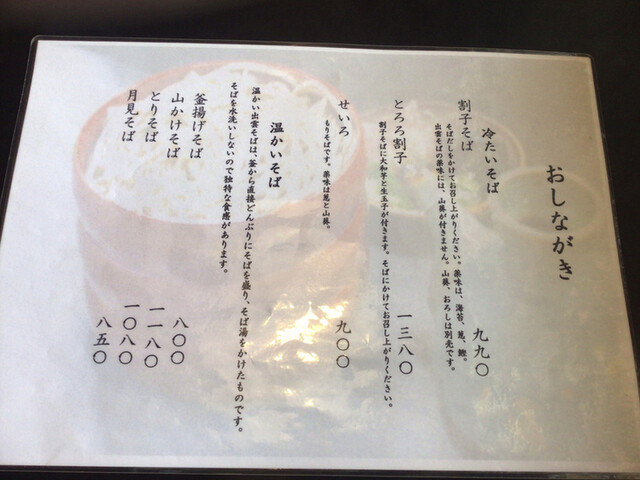 おしながき
冷たいそば
割子そば 九九〇
そばだしをかけてお召し上がりください。薬味は、海苔、葱、鰹。
出雲そばの薬味には、山葵が付きません。山葵、おろしは別売です。
とろろ割子 一三八〇
割子そばに大和芋と生玉子が付きます。そばにかけてお召し上がりください。
せいろ 九〇〇
もりそばです。薬味は葱と山葵。
温かいそば
温かい出雲そばは、釜から直接どんぶりにそばを盛り、そば湯をかけたものです。
そばを水洗いしないので独特な食感があります。
釜揚げそば 八〇〇
山かけそば 一一八〇
とりそば 一〇八〇
月見そば 八五〇